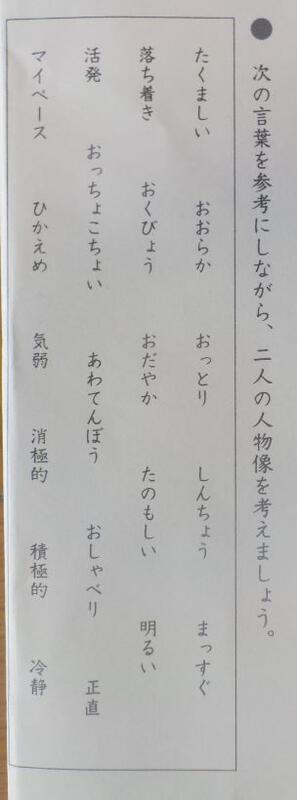 ● 次の言葉を参考にしながら、二人の人物像を考えましょう。
たくましい おおらか おっとり しんちょう まっすぐ
落ち着き おくびょう おだやか たのもしい 明るい
活発 おっちょこちょい あわてんぼう おしゃべり 正直
マイペース ひかえめ 気弱 消極的 積極的 冷静